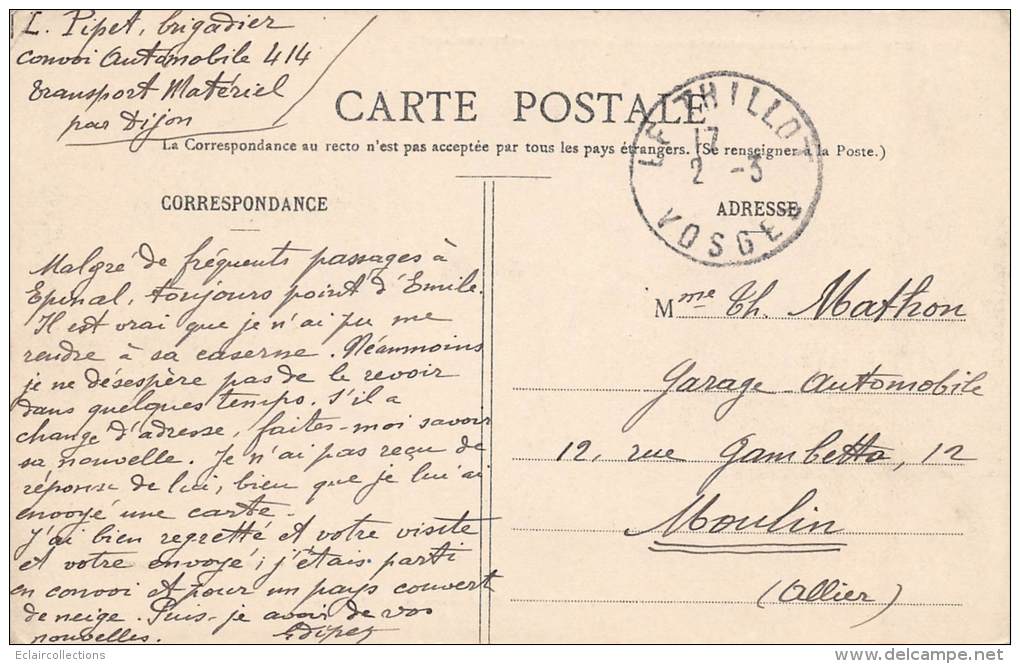 L. Pipet, brigadier
convoi Automobile 414
Transport Matériel
par Dijon
CARTE POSTALE
La Correspondance au recto n'est pas acceptée par tous les pays étrangers. (Se renseigner à la Poste.)
LE THILLOT
17
2 -3
VOSGES
CORRESPONDANCE
Malgré de fréquents passages à
Epinal, toujours point d'Emile.
Il est vrai que je n'ai pu me
rendre à sa caserne. Néanmoins
je ne désespère pas de le revoir
dans quelques temps. S'il a
changé d'adresse, faites-moi savoir
sa nouvelle. Je n'ai pas reçu de
réponse de lui, bien que je lui ai
envoyé une carte.
J'ai bien regretté et votre visite
et votre envoyé; j'étais parti
en convoi et pour un pays couvert
de neige. Puis-je avoir de vos
nouvelles. LPipet
ADRESSE
Mme Th. Mathon
Garage Automobile
12, rue Gambetta, 12
Moulin
(Allier)
Eclaircollections
www.delcampe.net